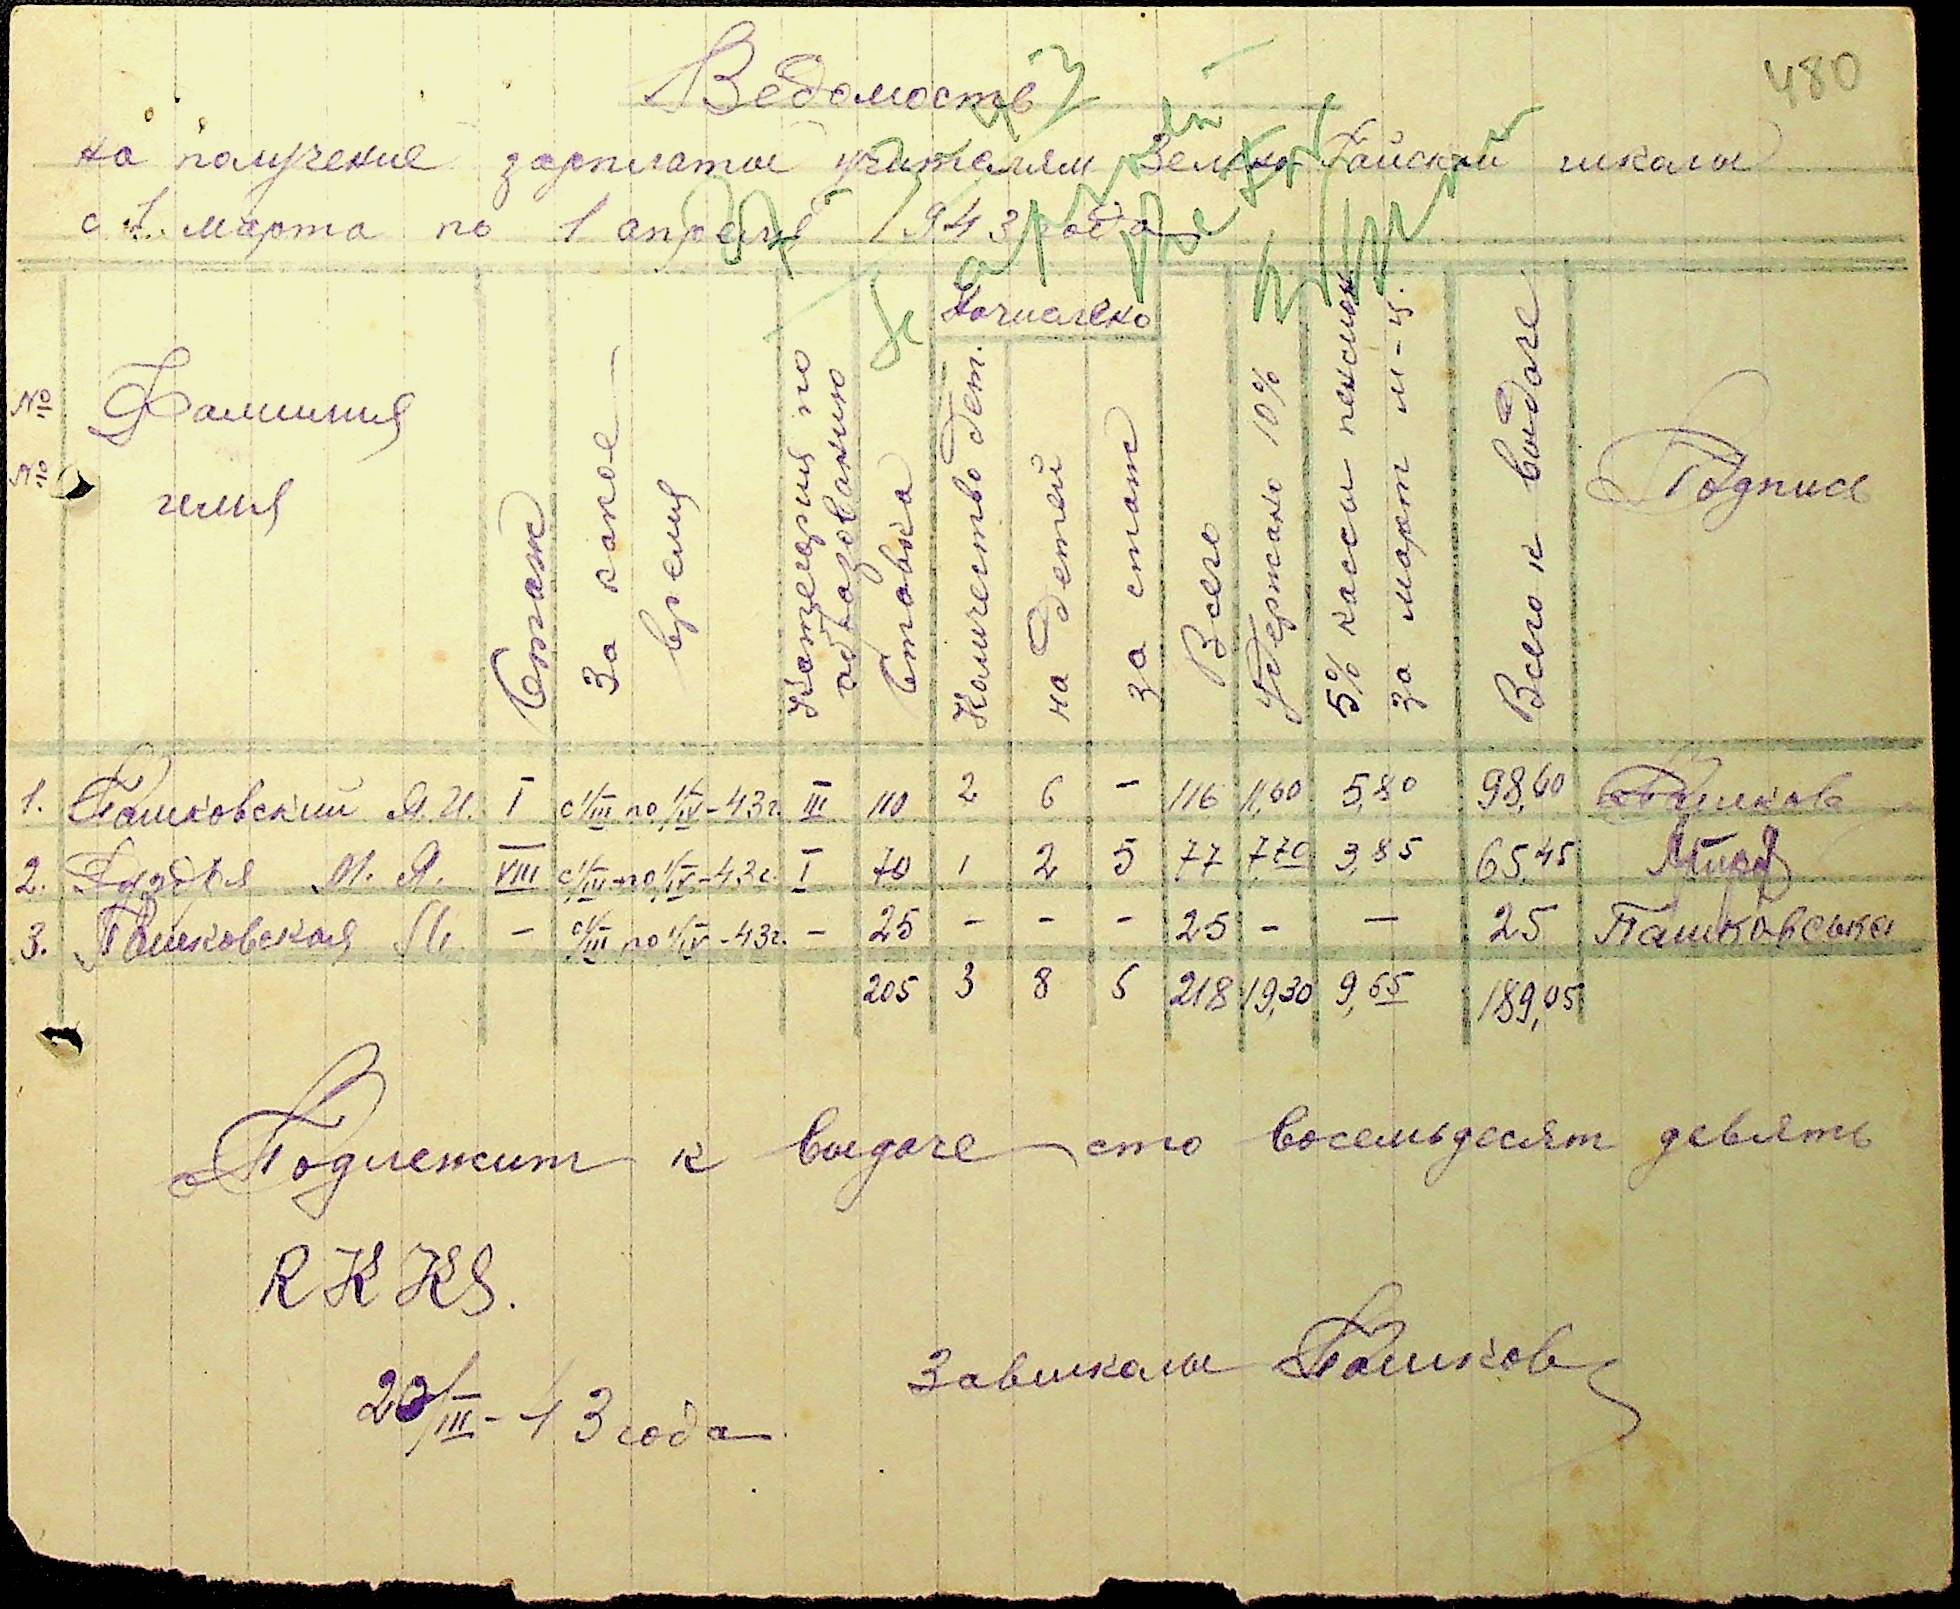 480
Ведомость
на получение зарплаты учителям Зелено-Гайской школы
с 1 марта по 1 апреля 1943 года
№ №
Фамилия
имя
Стаж
За какое
время
Категория по
образованию
Ставка
Начислено
Количество дет.
на детей
за стаж
Всего
Удержано 10%
5% кассы пенсион.
за март м-ц.
Всего к выдаче
Подпись
1. Пашковский Я. И. I с 1/III по 1/IV-43г. III 110 2 6 - 116 11,60 5,80 98,60 Пашков
2. М. Я. VIII с 1/III по 1/IV-43г. I 70 1 2 5 77 7,70 3,85 65,45
3. Пашковская М. - с 1/III по 1/IV-43г. - 25 - - - 25 - - 25 Пашковська
205 3 8 5 218 19,30 9,65 189,05
Подлежит к выдаче сто восемьдесят девять
RKKS.
20/III-43 года
Завшколы Пашков